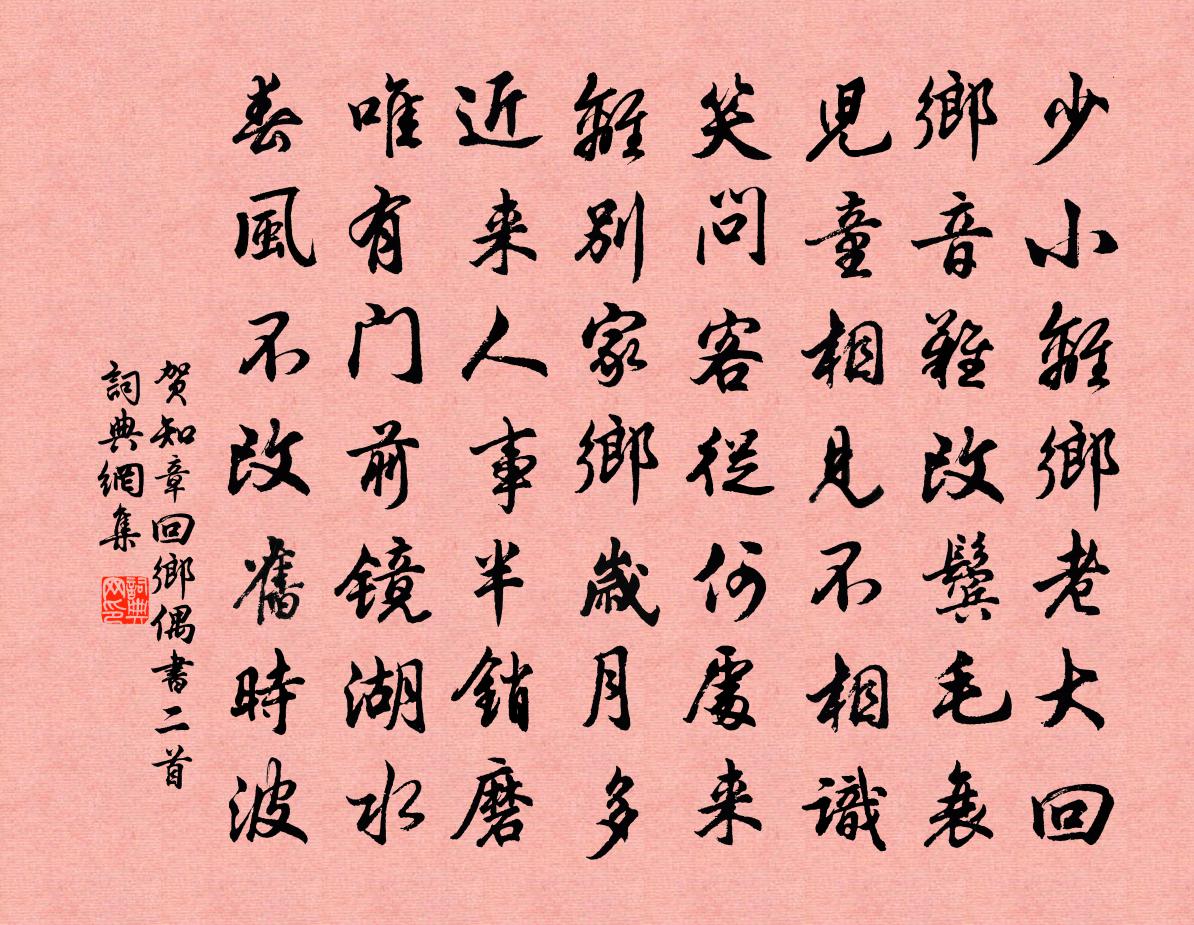 少小離鄉老大回
鄉音難改鬢毛衰
児童相見不相識
笑問客從何處来
離別家鄉歲月多
近来人事半銷磨
唯有门前镜湖水
春風不改舊時波
贺知章回鄉偶書二首
詞典網集
詞典网印